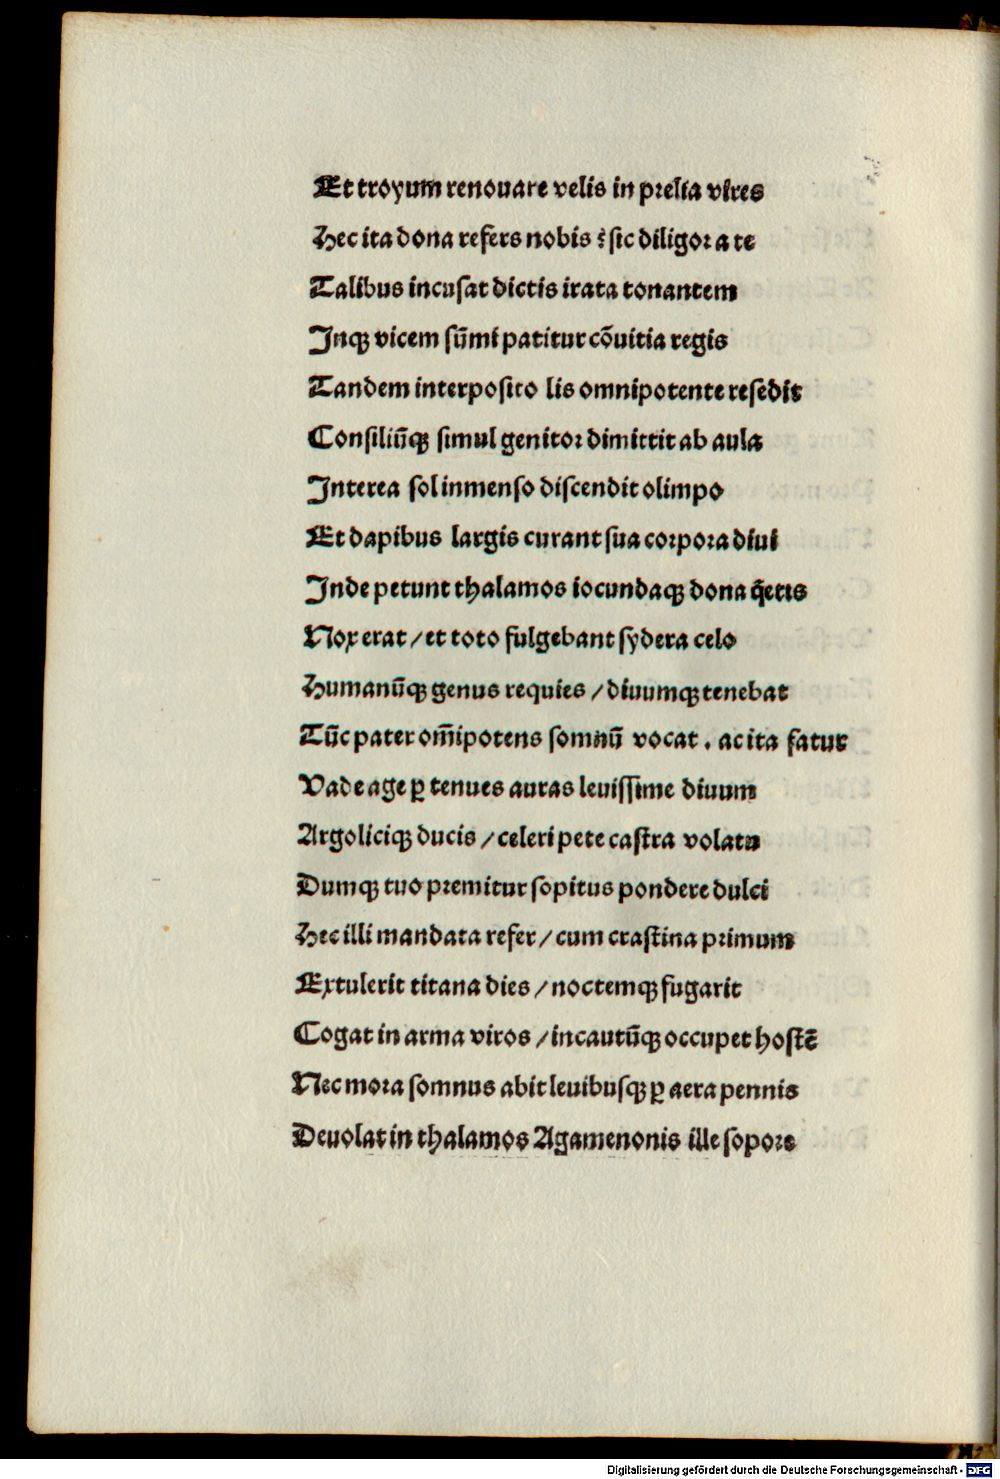 Et troyum renouare velis in prelia vires
Hec ita dona refers nobis ⁏ sic diligor a te
Talibus incusat dictis irata tonantem
Inqꝫ vicem sūmi patitur cōuitia regis
Tandem interposito lis omnipotente resedit
Consiliūqꝫ simul genitor dimittit ab aula
Interea sol inmenso discendit olimpo
Et dapibus largis curant sua corpora diui
Inde petunt thalamos iocundaqꝫ dona q̄etis
Nox erat / et toto fulgebant sydera celo
Humanūqꝫ genus requies / diuumqꝫ tenebat
Tūc pater om̄ipotens somnū vocat . ac ita fatur
Vade age ꝑ tenues auras leuissime diuum
Argoliciqꝫ ducis / celeri pete castra volatu
Dumqꝫ tuo premitur sopitus pondere dulci
Hec illi mandata refer / cum crastina primum
Extulerit titana dies / noctemqꝫ fugarit
Cogat in arma viros / incautūqꝫ occupet hostē
Nec mora somnus abit leuibusqꝫ ꝑ aera pennis
Deuolat in thalamos Agamenonis ille sopore
Digitalisierung gefördert durch die Deutsche Forschungsgemeinschaft - DFG